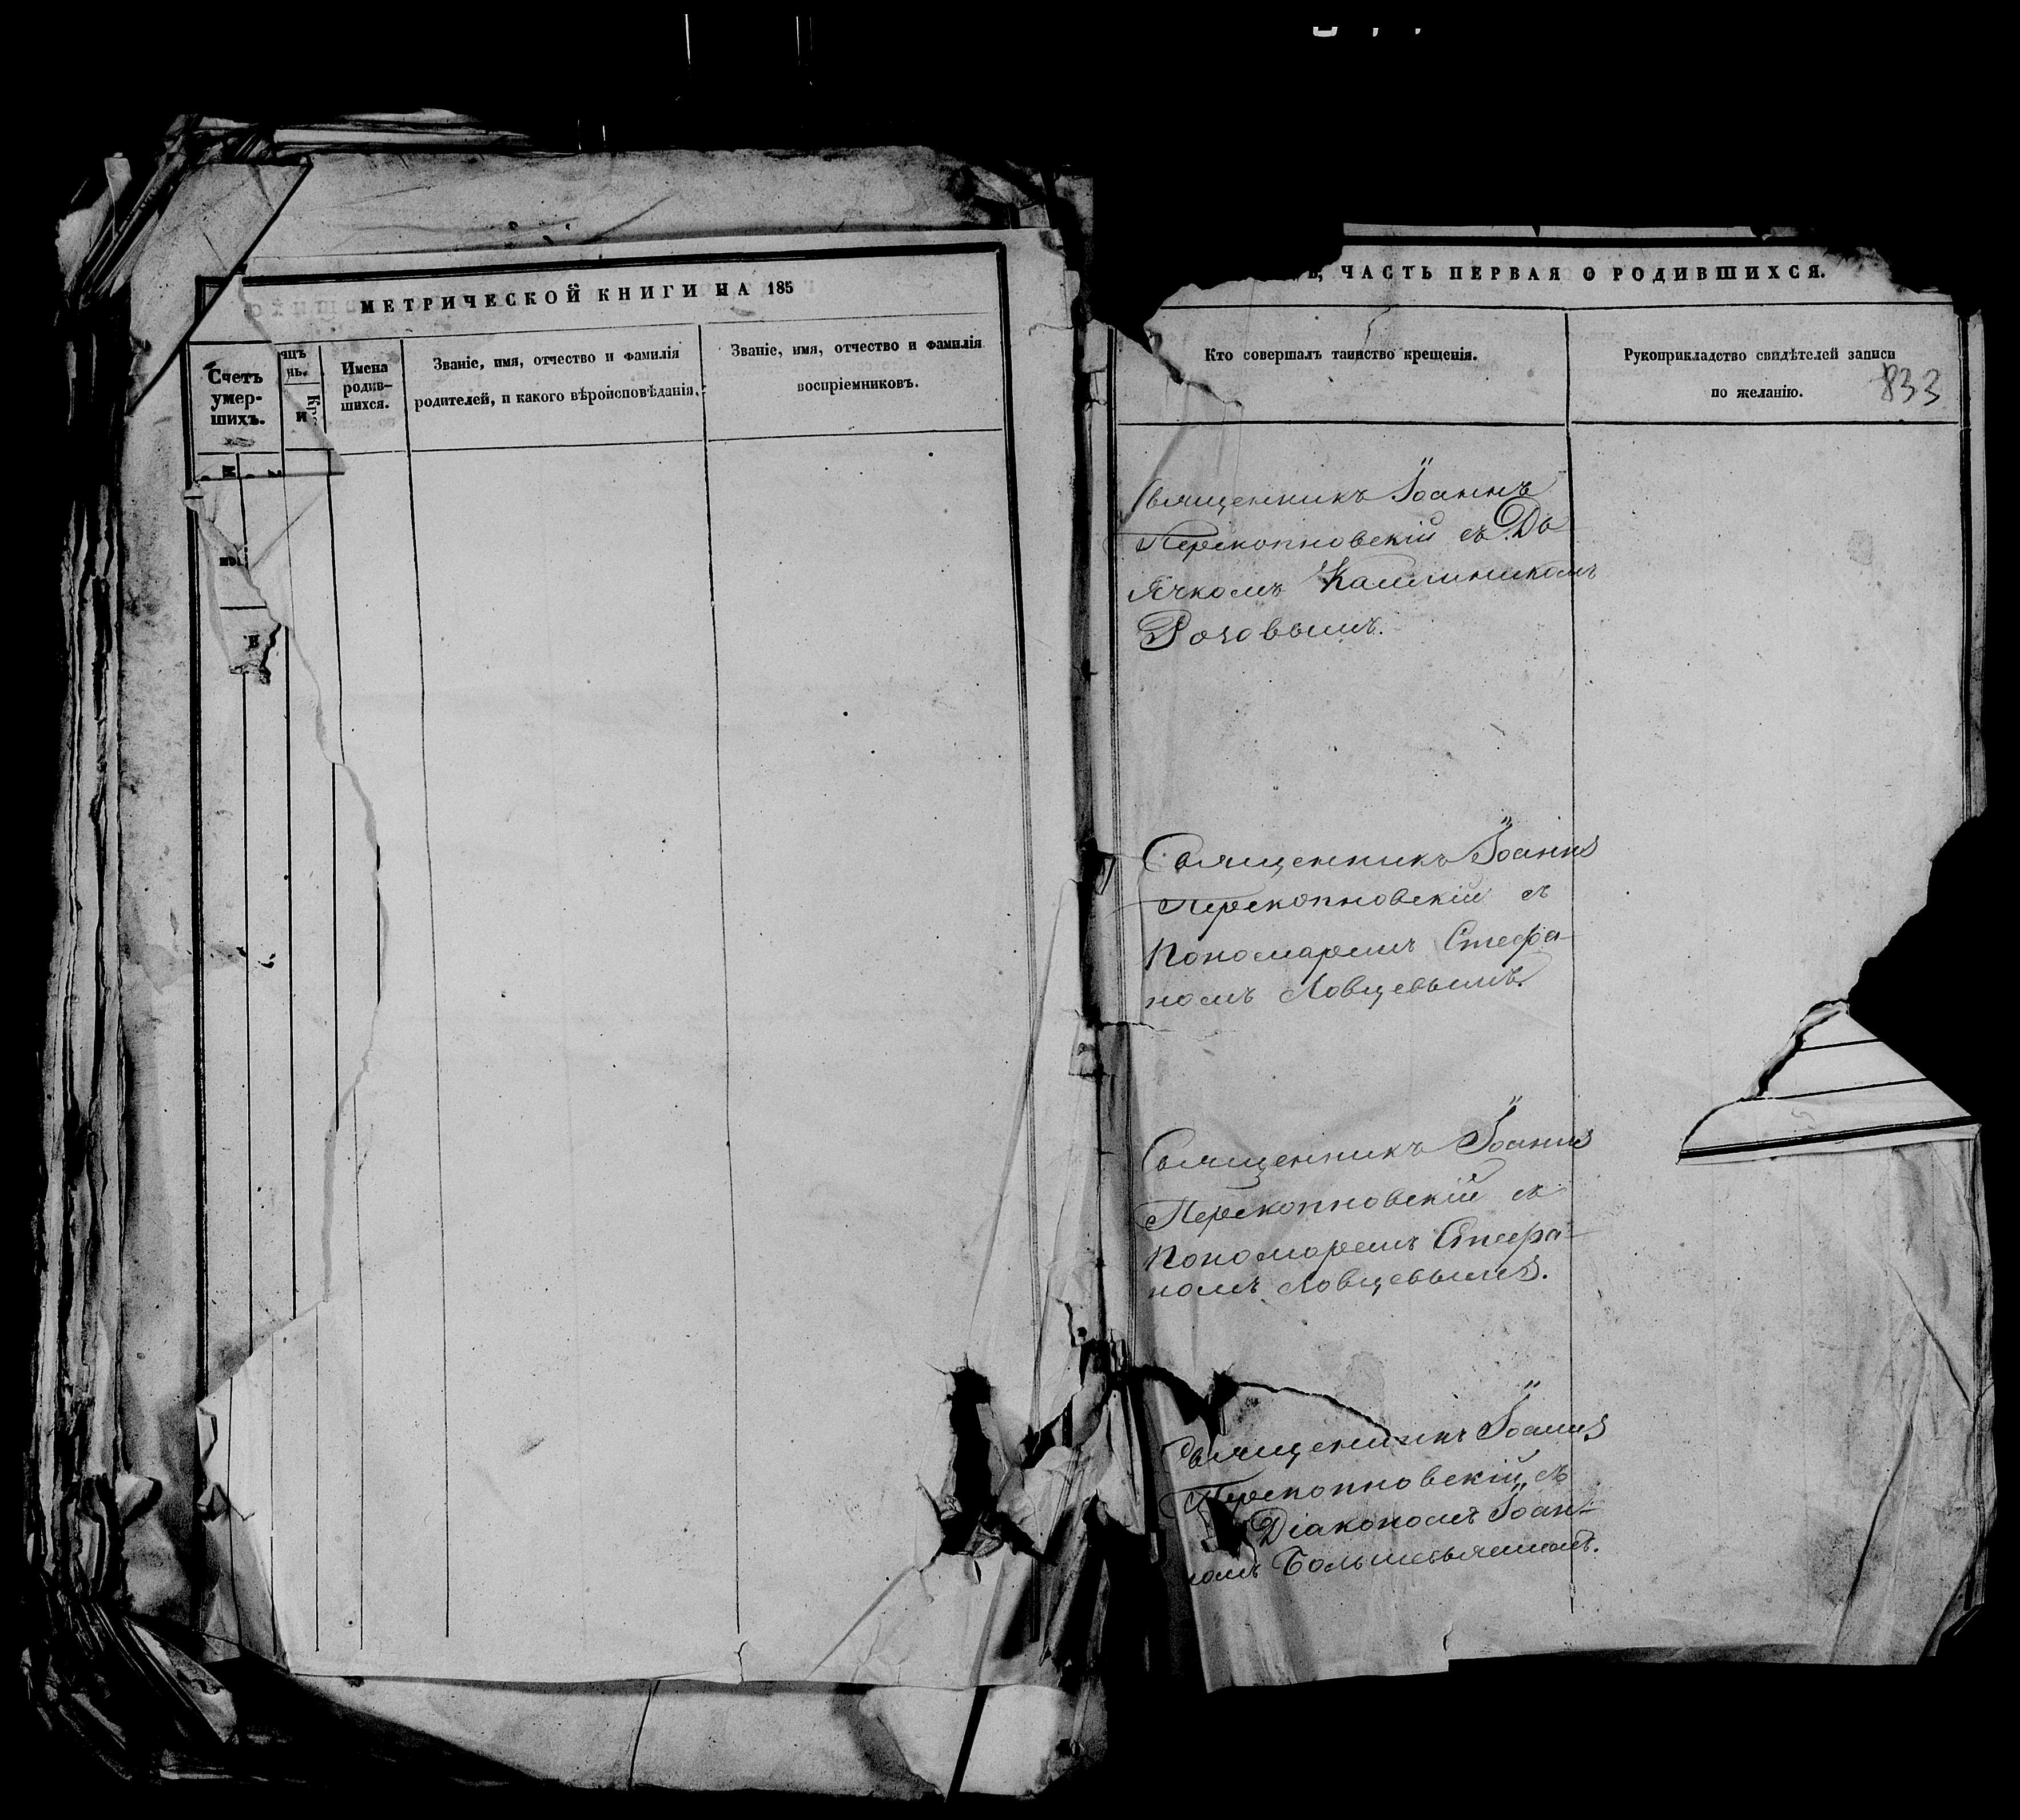 МЕТРИЧЕСКОЙ КНИГИ НА 185
Счетъ умер-
шихъ.
Имена
родив-
шихся.
Званіе, имя, отчество и фамилія
родителей, и какого вѣроисповѣданія.
Званіе, имя, отчество и фамилія
воспріемниковъ.
ЧАСТЬ ПЕРВАЯ О РОДИВШИХСЯ.
Кто совершалъ таинство крещенія.
Рукоприкладство свидѣтелей записи
по желанію.
833
Священникъ Іоаннъ
Перекопновскій съ Дь
ячкомъ Каллиникомъ
Роговымъ.
Священникъ Іоаннъ
Перекопновскій съ
Пономаремъ Стефа-
номъ Ловцевымъ.
Священникъ Іоаннъ
Перекопновскій съ
Пономаремъ Стефа-
номъ Ловцевымъ.
Священникъ Іоаннъ
Перекопновскій съ
Діакономъ Іоан-
номъ